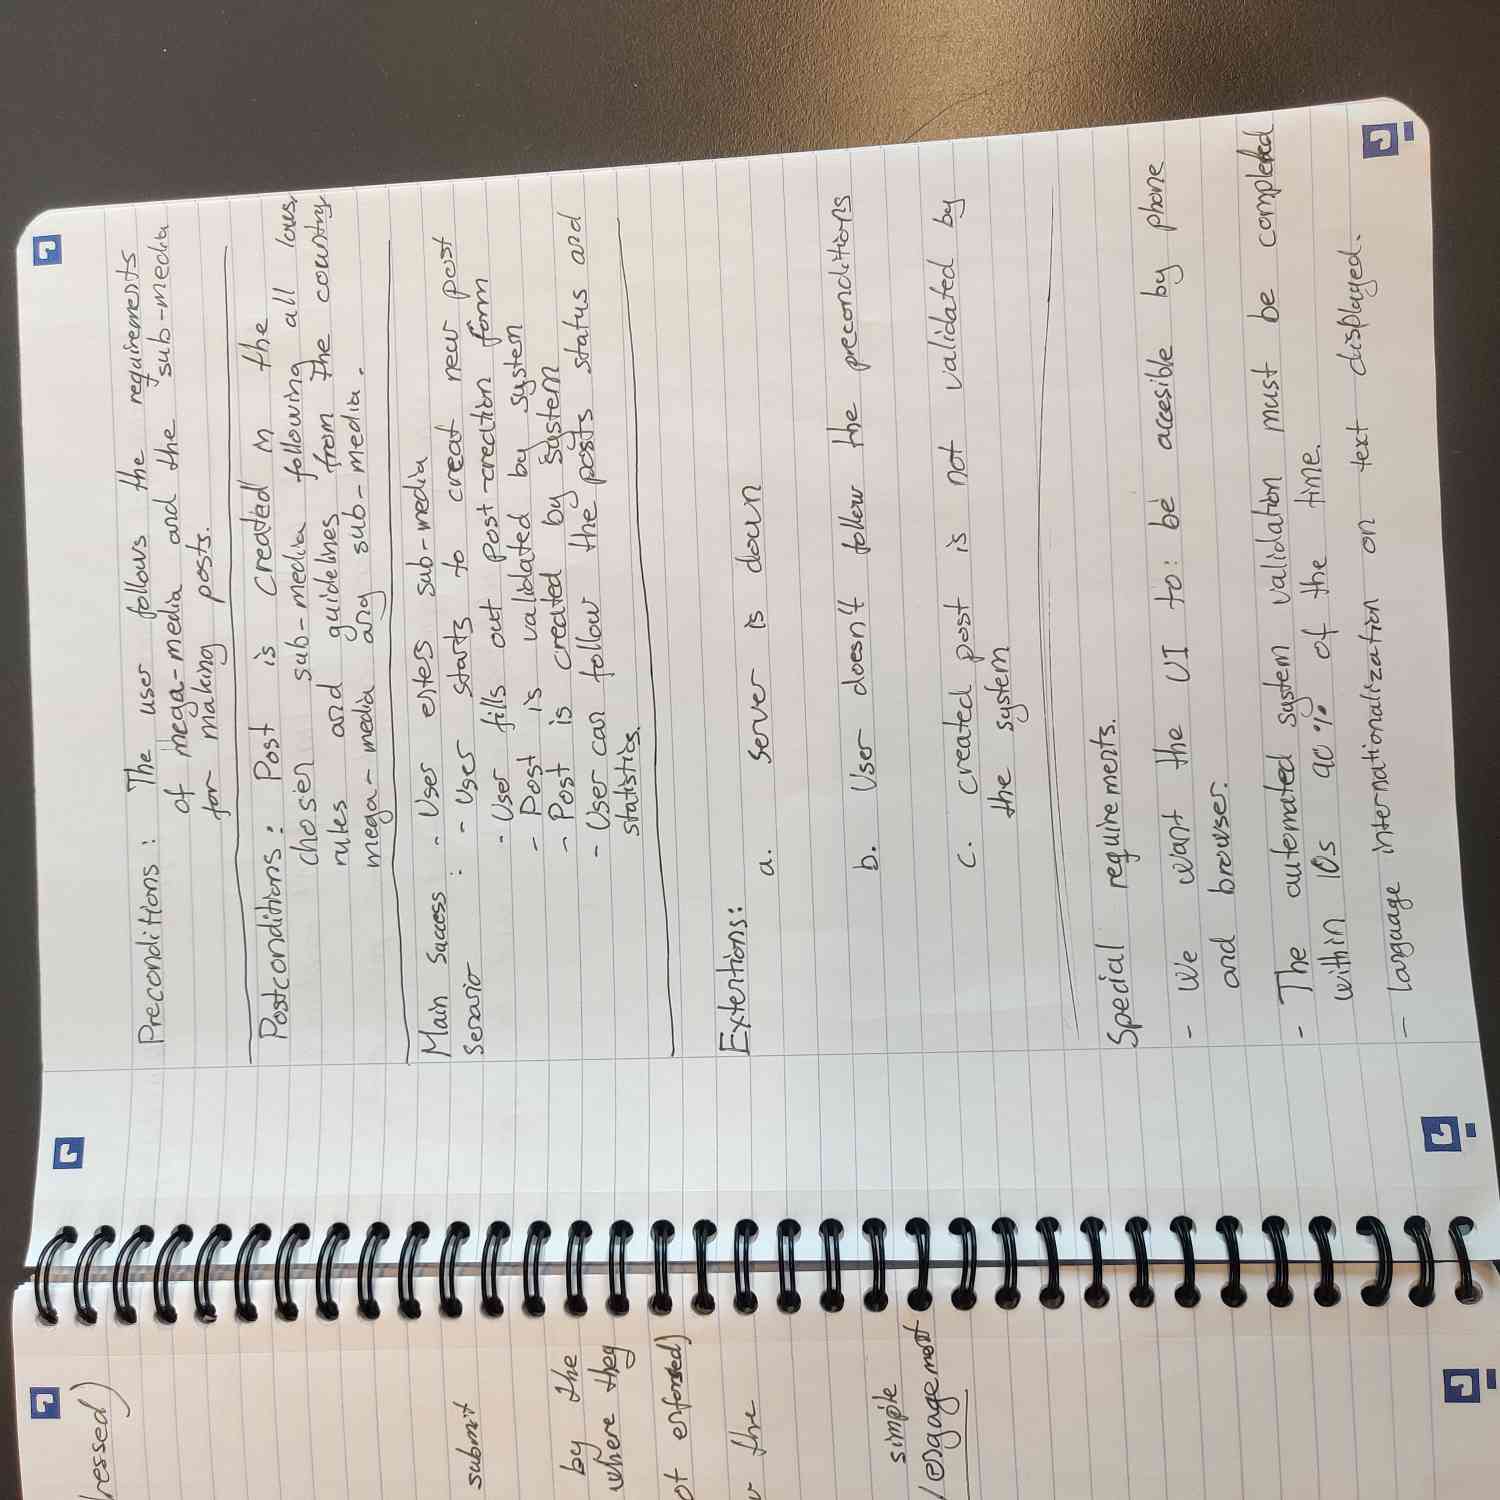 ressed)
submit
by the
where they
ot enforsed)
the
simple
/engagement
Preconditions: The user follows the requirements
of mega-media and the sub-media
for making posts.
Postconditions: Post is created in the
chosen sub-media following all laws,
rules and guidelines from the country
mega-media any sub-media.
Main Success : - User enters sub-media
Senario - User starts to creat new post
- User fills out post-creation form
- Post is validated by system
- Post is created by system
- User can follow the posts status and
statistics.
Extentions:
a. server is down
b. User doesn't follow the preconditions
c. created post is not validated by
the system
Special requirements.
- We want the UI to: be accesible by phone
and browser.
- The automated system validation must be completed
within 10s 90% of the time.
- language internationalization on text displayed.